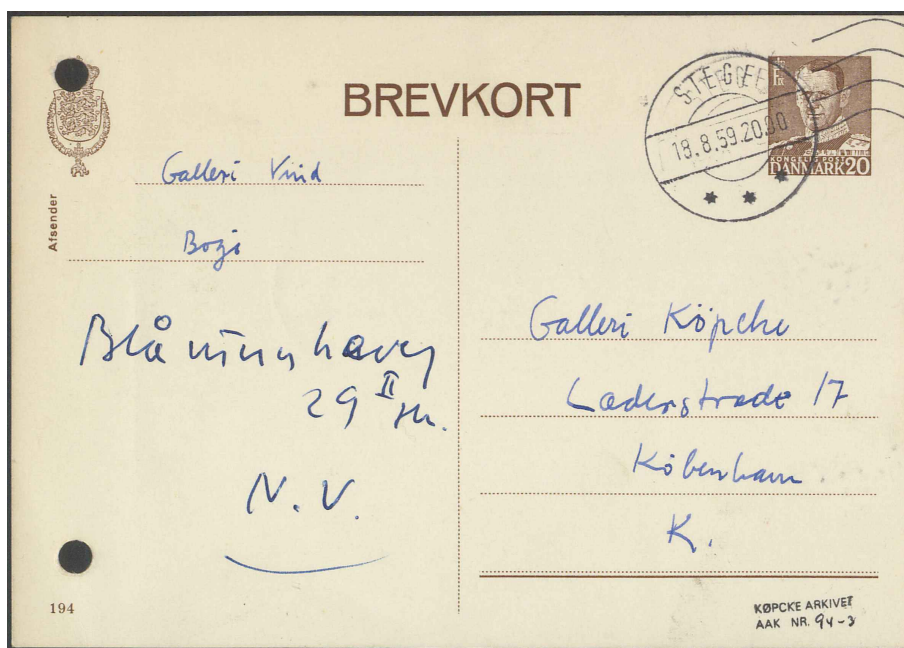 BREVKORT
STEGE
18.8.59.20
KONGELIG POST
DANMARK 20
Afsender
Galleri Vind
Bogi
Blåmunkevej
29 II th.
N.V.
Galleri Köpcke
Læderstræde 17
Köbenhavn
K.
194
KØPCKE ARKIVET
AAK NR. 94-3